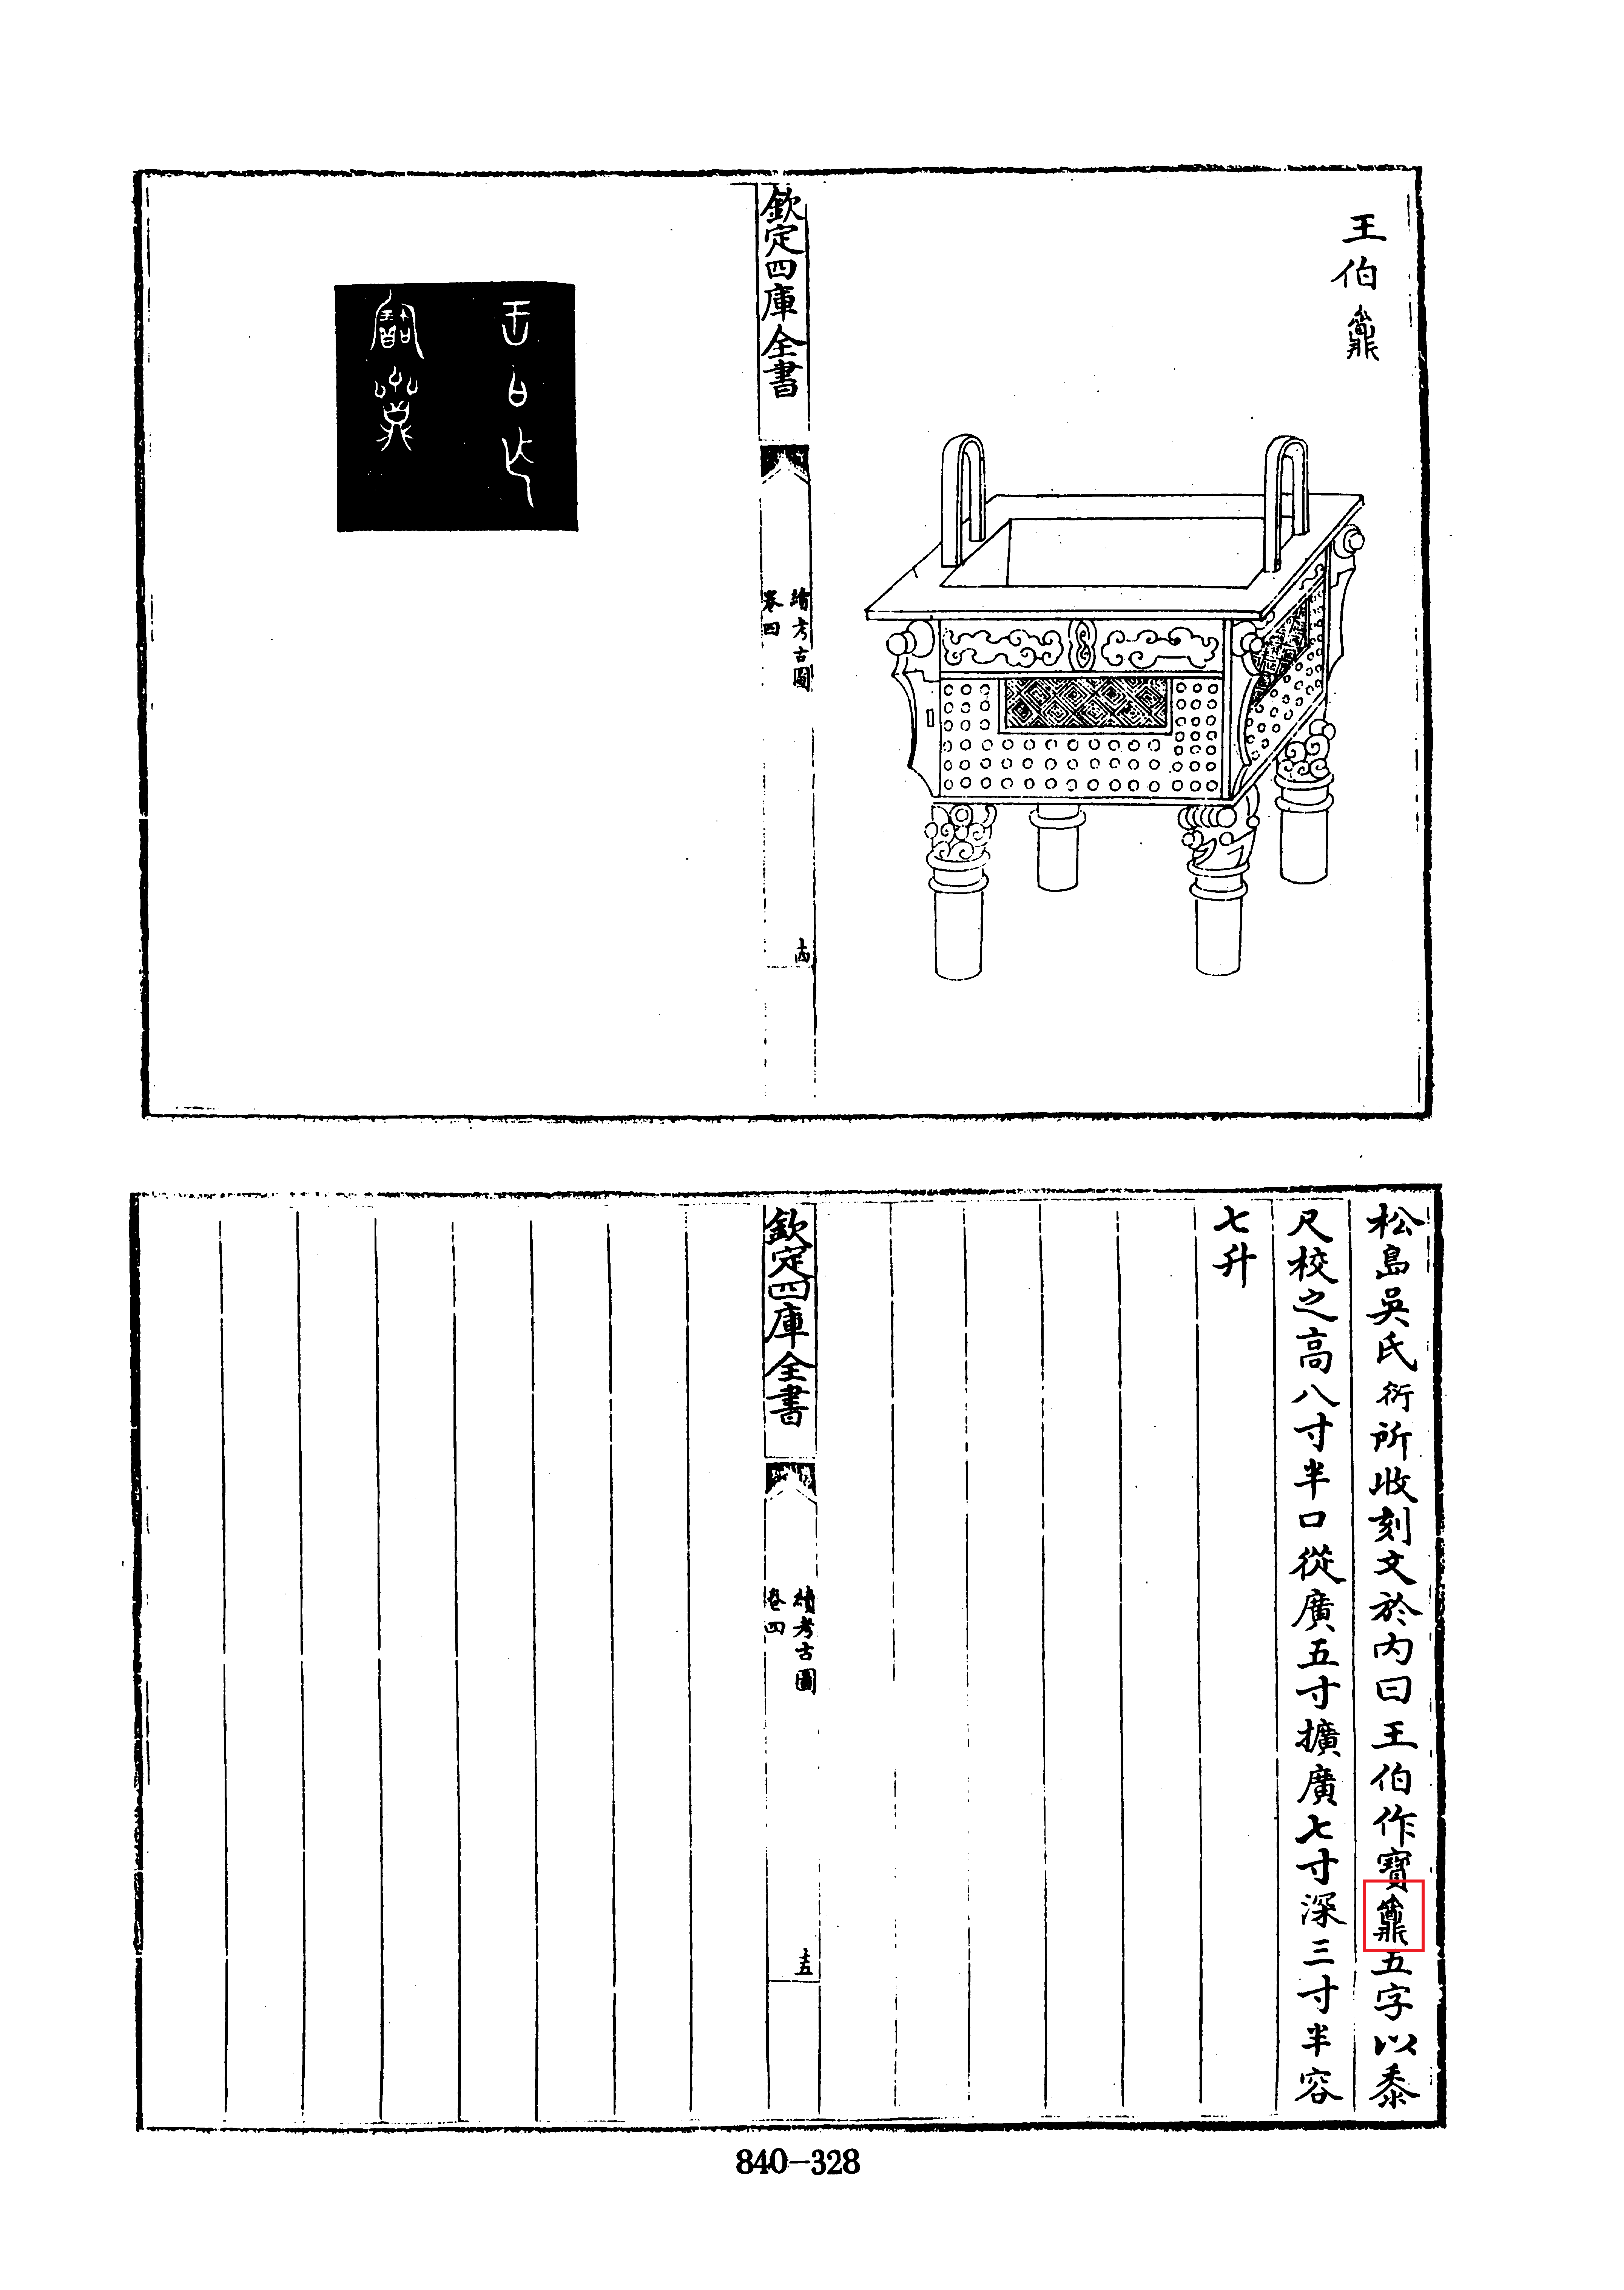 王伯
欽定四庫全書
續考古圖
卷四
十四
王白乍
寶
松島吳氏衍所收刻文於内曰王伯作寶五字以黍
尺校之高八寸半口從廣五寸擴廣七寸深三寸半容
七升
欽定四庫全書
續考古圖
卷四
十五
840-328